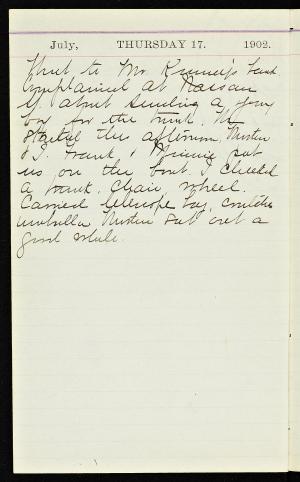 July, THURSDAY 17. 1902.
to Mr.
complained at Nassau
St about sending a
boy for the trunk. We
started this afternoon. Mother
& I. Frank & Winnie put
us on the boat. I checked
a trunk, chair, wheel.
Carried telescope bag,
umbrella. Mother sat out a
good while.